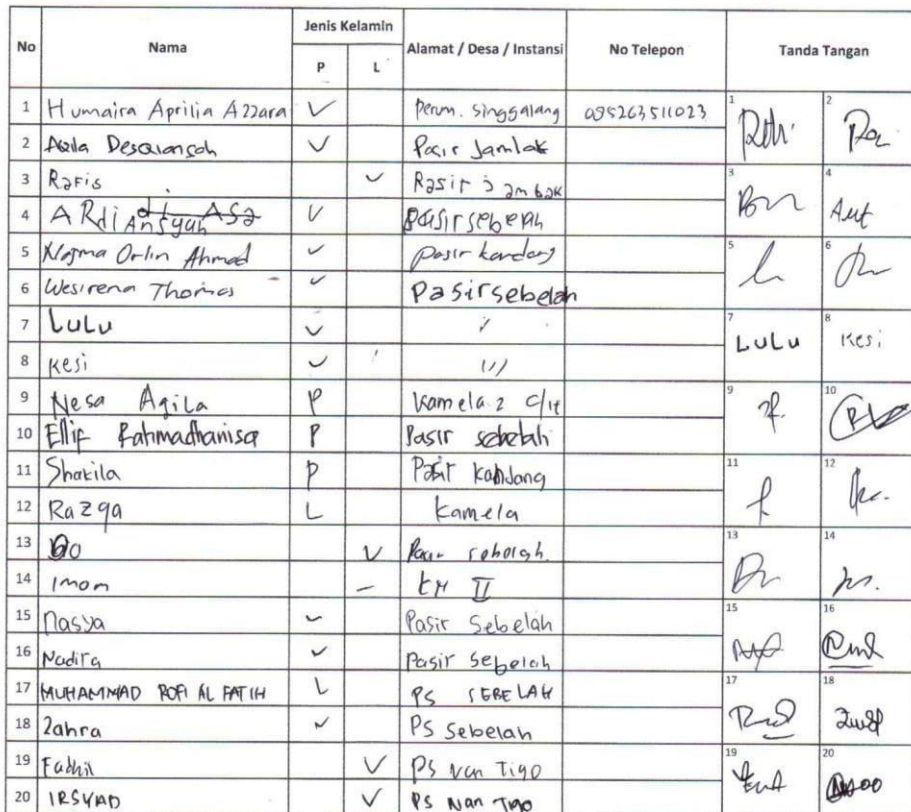 No Nama Jenis Kelamin Alamat / Desa / Instansi No Telepon Tanda Tangan
P L
1 Humaira Aprilia Azzara ✓ Perum. Singgalang 095263511023
2 ✓ Pasir Jambak
3 Rafis ✓ Pasir Jambak
4 ARdiAnsyah ✓ Pasir sebelah
5 Najma Orlin Ahmad ✓ pasir kandang
6 Wesirena Thomas ✓ Pasirsebelah
7 LuLu ✓ LULU
8 Kesi ✓ Kesi
9 Nesa Aqila P Kamela 2
10 Ellif Rahmadhanisa P Pasir sebelah
11 Shakila P Pasir Kandang
12 Razqa L Kamela
13 ✓ Pasir sebelah
14 Imam – KM II
15 Nasya ✓ Pasir Sebelah
16 Nadira ✓ Pasir Sebelah
17 MUHAMMAD ROFI AL FATIH L PS SEBELAH
18 Zahra ✓ PS Sebelah
19 Fadhil ✓ PS Nan Tigo
20 IRSYAD ✓ PS Nan Tigo